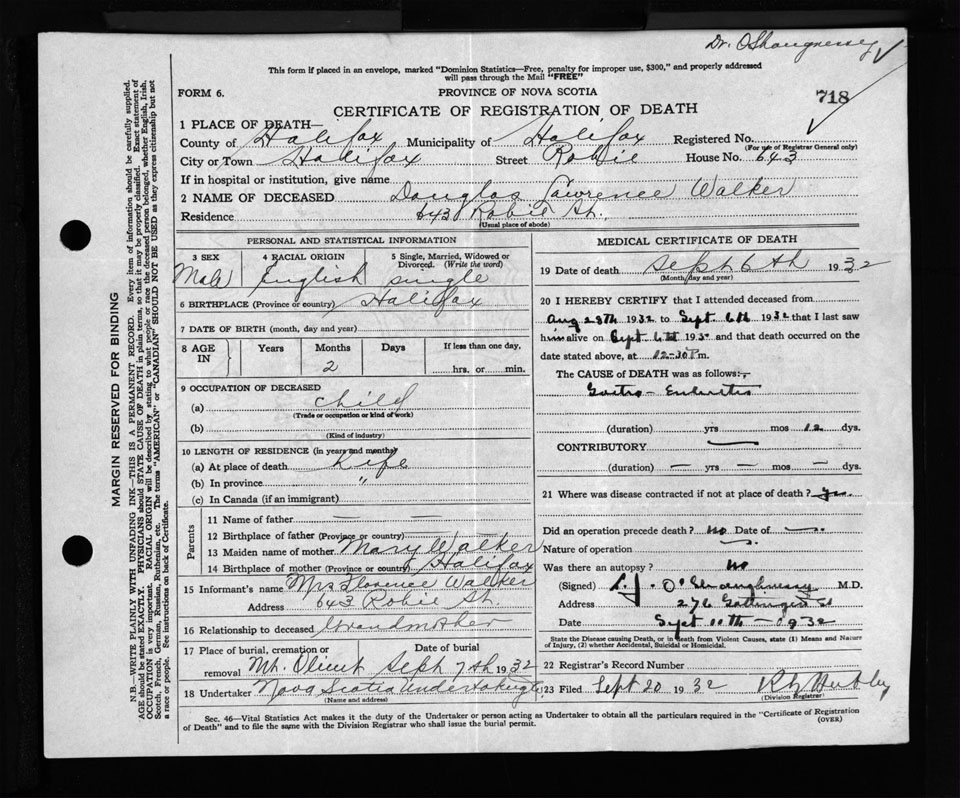 Dr. O'Shaugnessy
This form if placed in an envelope, marked "Dominion Statistics—Free, penalty for improper use, $300," and properly addressed
will pass through the Mail "FREE"
FORM 6.
PROVINCE OF NOVA SCOTIA
718
CERTIFICATE OF REGISTRATION OF DEATH
1 PLACE OF DEATH—
County of Halifax Municipality of Halifax Registered No.
(For use of Registrar General only)
City or Town Halifax Street Robie House No. 643
If in hospital or institution, give name
2 NAME OF DECEASED Douglas Lawrence Walker
Residence 643 Robie St.
(Usual place of abode)
PERSONAL AND STATISTICAL INFORMATION
3 SEX 4 RACIAL ORIGIN 5 Single, Married, Widowed or
Divorced. (Write the word)
Male English single
6 BIRTHPLACE (Province or country) Halifax
7 DATE OF BIRTH (month, day and year)
8 AGE IN Years Months Days If less than one day,
2 hrs. or min.
9 OCCUPATION OF DECEASED
(a) child
(Trade or occupation or kind of work)
(b)
(Kind of industry)
10 LENGTH OF RESIDENCE (in years and months)
(a) At place of death Life
(b) In province "
(c) In Canada (if an immigrant)
Parents
11 Name of father — —
12 Birthplace of father (Province or country)
13 Maiden name of mother Mary Walker
14 Birthplace of mother (Province or country) Halifax
15 Informant's name Mrs Florence Walker
Address 643 Robie St.
16 Relationship to deceased Grandmother
17 Place of burial, cremation or Date of burial
removal Mt. Olivet Sept 7th 1932
18 Undertaker Nova Scotia Undertaking Co.
(Name and address)
MEDICAL CERTIFICATE OF DEATH
19 Date of death Sept 6th 1932
(Month, day and year)
20 I HEREBY CERTIFY that I attended deceased from
Aug 28th 1932 to Sept 6th 1932 that I last saw
him alive on Sept 6th 193 and that death occurred on the
date stated above, at 12-30 P m.
The CAUSE of DEATH was as follows:
Gastro-Enteritis
(duration) yrs mos 12 dys.
CONTRIBUTORY —
(duration) — yrs — mos — dys.
21 Where was disease contracted if not at place of death?
Did an operation precede death? no Date of —
Nature of operation —
Was there an autopsy? no
(Signed) J. O'Shaughnessy M.D.
Address 276 Gottingen St
Date Sept 10th – 1932
State the Disease causing Death, or in death from Violent Causes, state (1) Means and Nature
of Injury, (2) whether Accidental, Suicidal or Homicidal.
22 Registrar's Record Number
23 Filed Sept 20 1932
(Division Registrar)
Sec. 46—Vital Statistics Act makes it the duty of the Undertaker or person acting as Undertaker to obtain all the particulars required in the "Certificate of Registration
of Death" and to file the same with the Division Registrar who shall issue the burial permit.
(OVER)
MARGIN RESERVED FOR BINDING
N.B.—WRITE PLAINLY WITH UNFADING INK—THIS IS A PERMANENT RECORD. Every item of information should be carefully supplied.
AGE should be stated EXACTLY. PHYSICIANS should STATE CAUSE OF DEATH in plain terms, so that it may be properly classified. Exact statement of
OCCUPATION is very important. RACIAL ORIGIN will be described by stating to what people or race the deceased person belonged, whether English, Irish,
Scotch, French, German, Russian, Ruthenian, etc. The terms "AMERICAN" or "CANADIAN" SHOULD NOT BE USED as they express citizenship but not
a race or people. See instructions on back of Certificate.